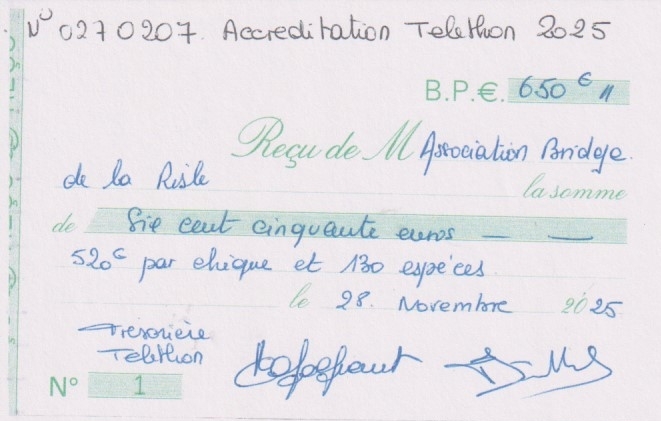 N° 0270207. Accreditation Telethon 2025
B.P.€. 650 € //
Reçu de M Association Bridge
de la Risle
la somme
de Six cent cinquante euros — —
520€ par chèque et 130 espèces
le 28. Novembre 2025
Trésorière
Telethon
N° 1